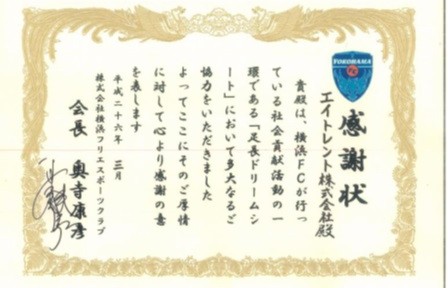 YOKOHAMA
FC
感謝状
エイトレント株式会社殿
貴殿は、横浜FCが行っ
ている社会貢献活動の一
環である「足長ドリームシ
ート」において多大なるご
協力をいただきました
よってここにそのご厚情
に対して心より感謝の意
を表します
平成二十六年 三月
株式会社横浜フリエスポーツクラブ
会長 奥寺康彦